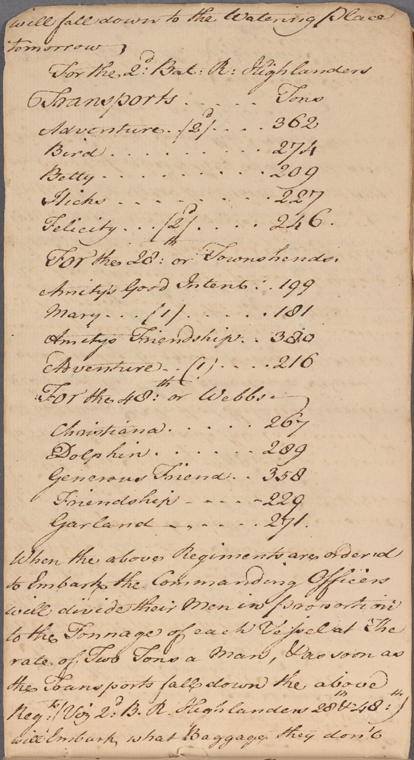 will fall down to the Watering place
tomorrow
For the 2d: Bat: R: Highlanders
Transports . . . . . Tons
Adventure . (2d) . . . . 362
Bird . . . . . . . . . 274
Betty . . . . . . . . . 209
Hicks . . . . . . . . . 227
Felicity . . . (2d) . . . . 246.
For the 28th: or Townshends.
Amitys Good Intent . . 199
Mary . . . (1) . . . . . . 181
Amitys Friendship . . 380
Adventure . . (1) . . . . 216
For the 48th: or Webbs:
Christiana . . . . . 267
Dolphin . . . . . . 289
Generous Friend . . 358
Friendship - - - - - 229
Garland - - - - - 271.
When the above Regiments are orderd
to Embark, the Commanding Officers
will divide their Men in proportion
to the Tonnage of each Vessel at The
rate of Two Tons a Man, & as soon as
the Transports fall down the above
Regts: (Viz 2d B. R. Highlanders 28th & 48th:)
will Embark what Baggage they don't